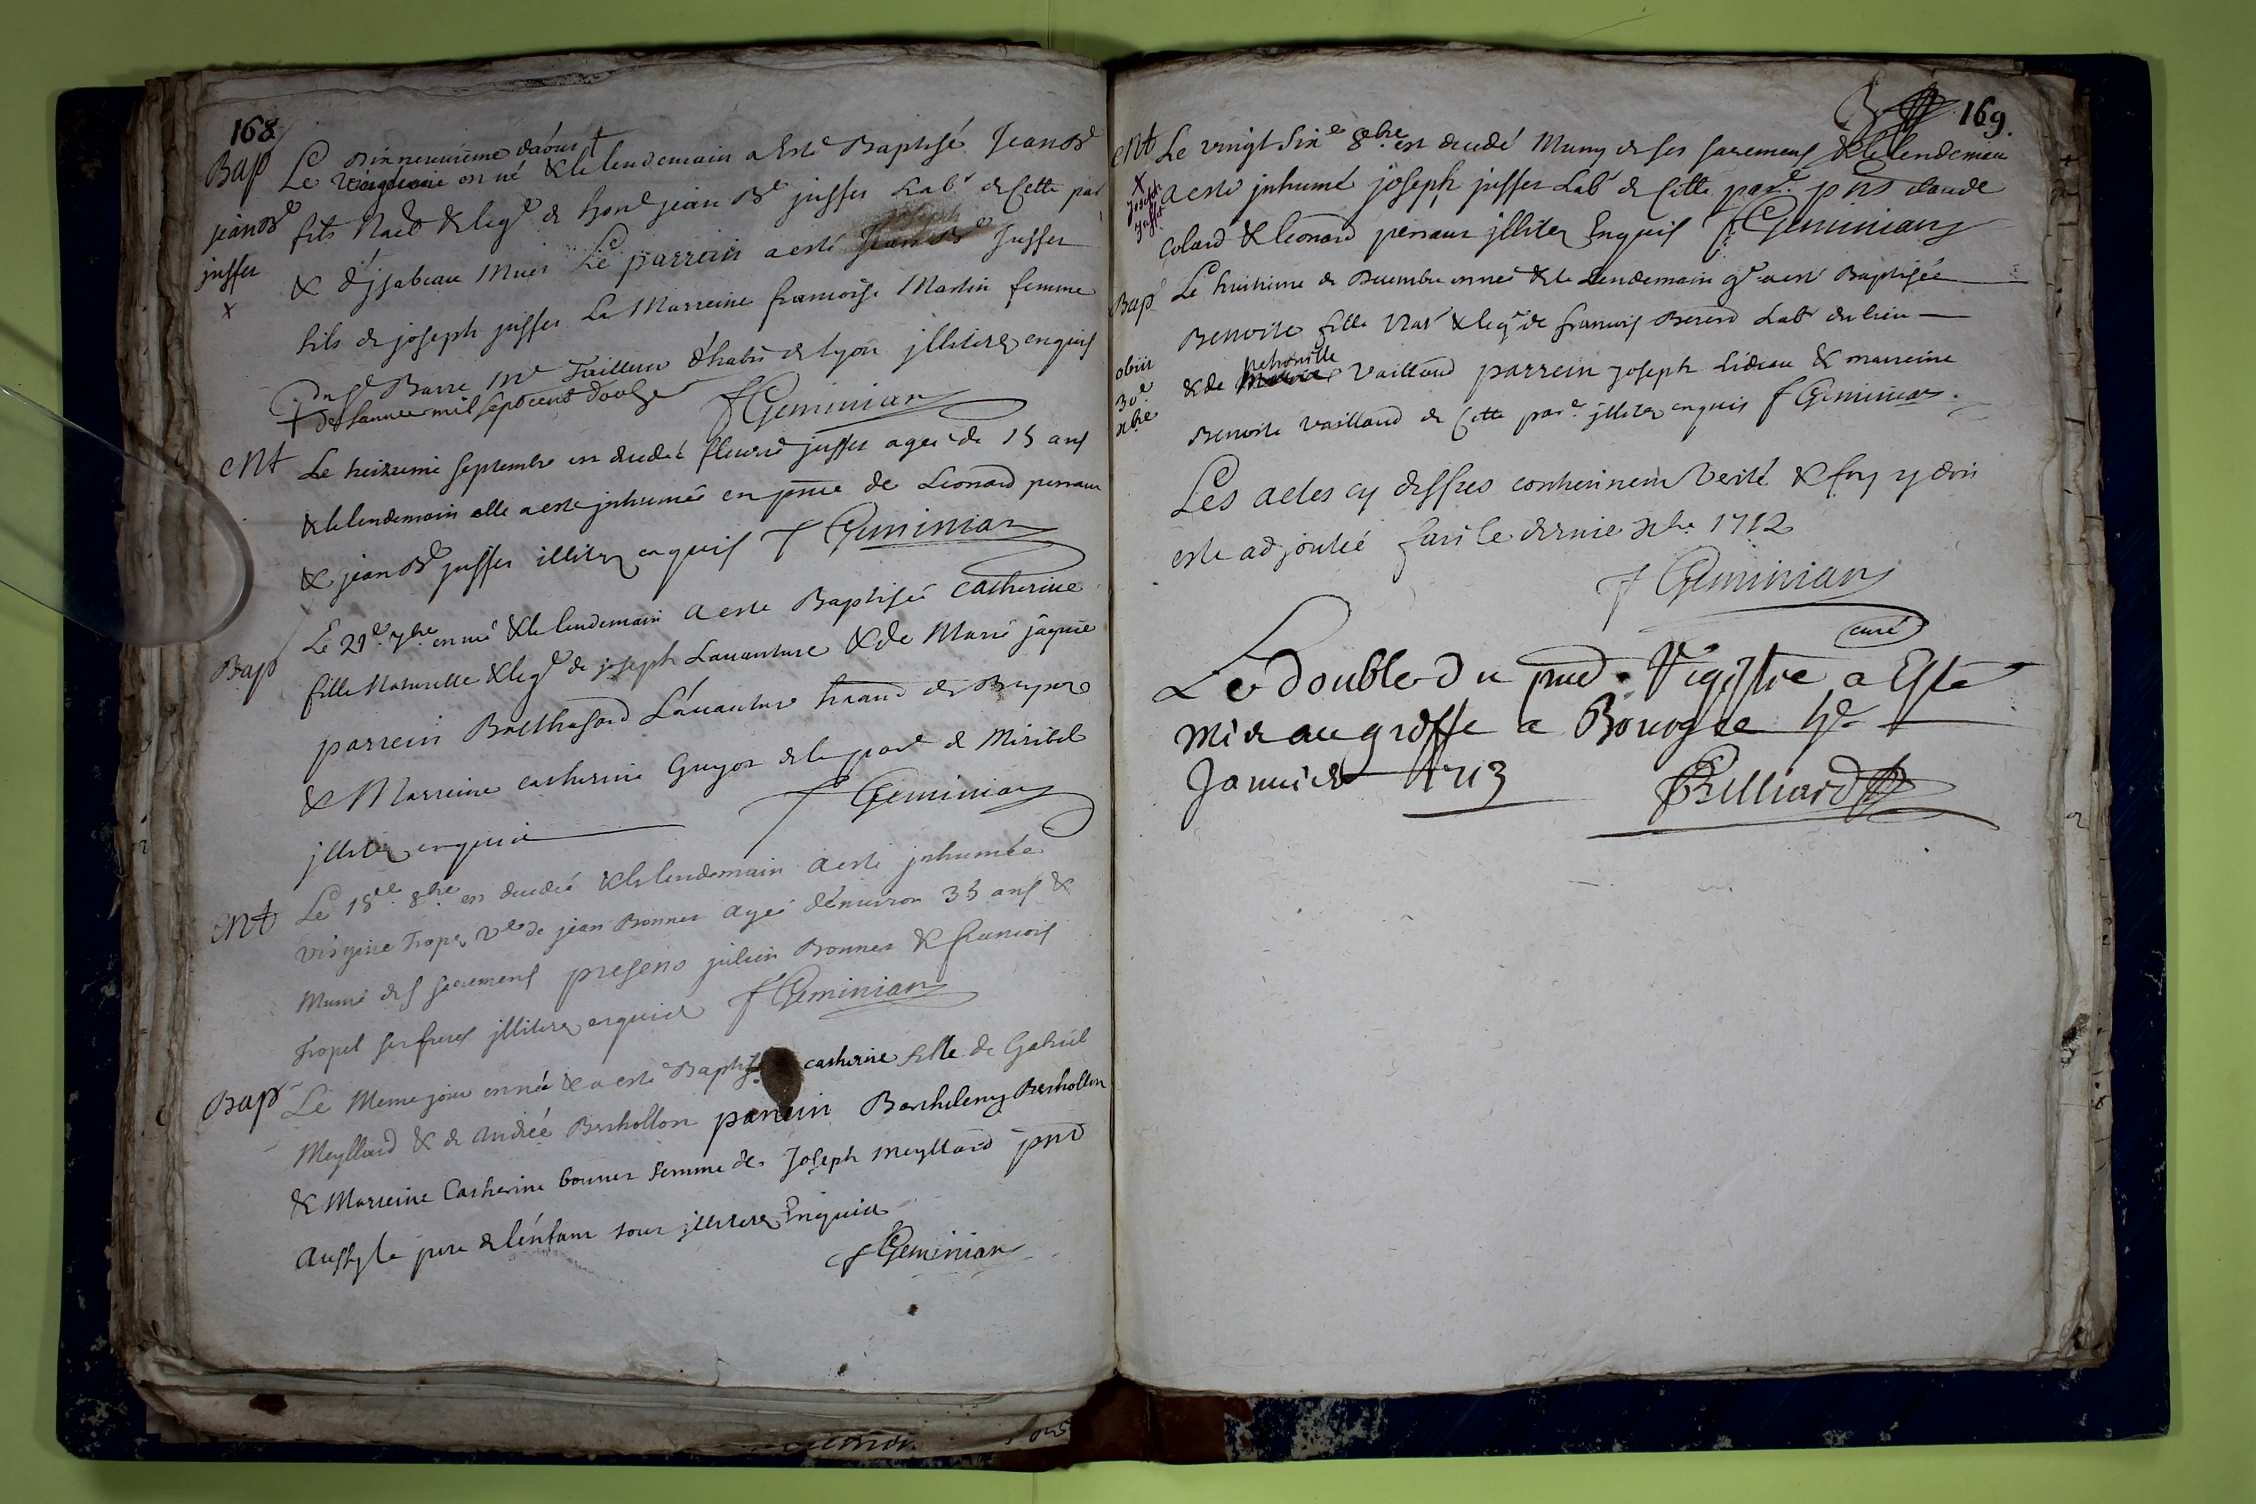 168
Bap Le dixneuvieme d'aoust est né & le lendemain a esté Baptisé Jean Bte
jean Bte fils Nael & legme de honble jean Bte juffet Labr de cette par
juffet & d'ysabeau Le parrein a esté joseph Juffet
x fils de joseph juffet La Marreine francoise Martin femme
Barre Me Tailleur d'habis de lyon illiterez enquis
de l'annee mil sept cent douze f Geminian
ent Le treizieme septembre est decedeé fleurie juffet ageé de 15 ans
& le lendemain elle a esté inhumeé en pnce de Leonard perraur
& jean Bte juffet illiterez enquis f Geminian
Le 21e 7bre est neé & le lendemain a esté Baptiseé catherine
Bap fille Naturelle & legme de joseph Lauanture & de Marie jaquie
parrein Balthasard Lauanture
& Marreine catherine Guyot de la parse de Miribel
illiterez enquis f Geminian
Le 18e 8bre est decedeé & le lendemain a esté inhumeé
ent virginie Tropel Ve de jean Bonnet ageé d'enuiron 35 ans &
Munie des sacremens presens julien Bonnet & francois
Tropel ses freres illiterez enquis f Geminian
Bap Le Meme jour est née & a esté Baptisée catherine fille de Gabriel
Meyllard & de Andreé Berthollon parrein Barthelemy Berthollon
& Marreine Catherine bonnet femme de Joseph Meyllard pnt
aussy le pere de l'enfant tous illiterez Enquis
f Geminian
169.
ent Le vingt sixe 8bre est decedé Muny de ses sacremens & le lendemain
x Joseph Juffet a esté inhumé joseph juffet Labr de cette parse pnts claude
Colard & leonard perraur illiterez Enquis f Geminian
Bap Le huitieme de Decembre est neé & le Lendemain ge a esté Baptisée
Benoite fille Nat & legme de francois Bererd Labr du lieu
obiit 30e xbre & de petronille Vailland parrein joseph Lidrau & marreine
Benoite Vailland de cette parse illiterez enquis f Geminian
Les actes cy dessus contiennent verité & foy y doit
estre adjouteé fait le dernier xbre 1712
f Geminian
curé
Le double du pnt Registre a Esté
mis au greffe a Bourg le
Januier 1713 Billiard